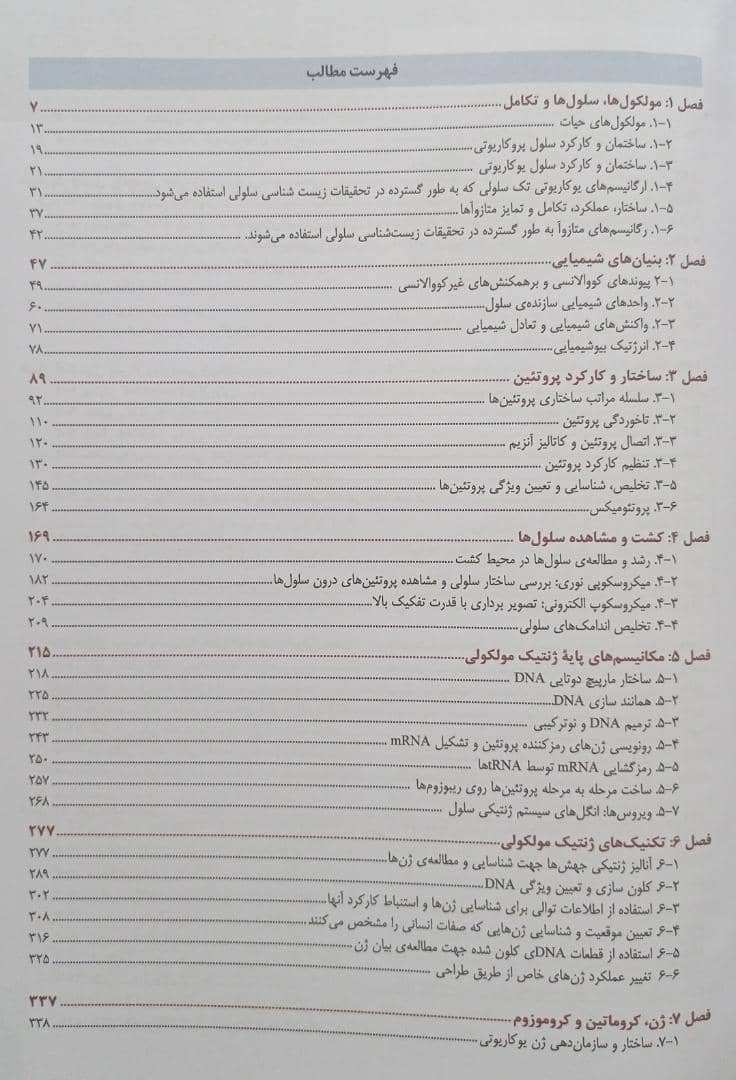 فهرست مطالب
فصل ۱: مولکول‌ها، سلول‌ها و تکامل ... ۷
۱-۱. مولکول‌های حیات ... ۱۳
۱-۲. ساختمان و کارکرد سلول پروکاریوتی ... ۱۹
۱-۳. ساختمان و کارکرد سلول یوکاریوتی ... ۲۱
۱-۴. ارگانیسم‌های یوکاریوتی تک سلولی که به طور گسترده در تحقیقات زیست شناسی سلولی استفاده می‌شود ... ۳۱
۱-۵. ساختار، عملکرد، تکامل و تمایز متازوآها ... ۳۷
۱-۶. رگانیسم‌های متازوآ به طور گسترده در تحقیقات زیست‌شناسی سلولی استفاده می‌شوند. ... ۴۲
فصل ۲: بنیان‌های شیمیایی ... ۴۷
۲-۱ پیوندهای کووالانسی و برهمکنش‌های غیرکووالانسی ... ۴۹
۲-۲. واحدهای شیمیایی سازنده‌ی سلول ... ۶۰
۲-۳. واکنش‌های شیمیایی و تعادل شیمیایی ... ۷۱
۲-۴. انرژتیک بیوشیمیایی ... ۷۸
فصل ۳: ساختار و کارکرد پروتئین ... ۸۹
۳-۱. سلسله مراتب ساختاری پروتئین‌ها ... ۹۲
۳-۲. تاخوردگی پروتئین ... ۱۱۰
۳-۳. اتصال پروتئین و کاتالیز آنزیم ... ۱۲۰
۳-۴. تنظیم کارکرد پروتئین ... ۱۳۰
۳-۵. تخلیص، شناسایی و تعیین ویژگی پروتئین‌ها ... ۱۴۵
۳-۶. پروتئومیکس ... ۱۶۴
فصل ۴: کشت و مشاهده سلول‌ها ... ۱۶۹
۴-۱. رشد و مطالعه‌ی سلول‌ها در محیط کشت ... ۱۷۰
۴-۲. میکروسکوپی نوری: بررسی ساختار سلولی و مشاهده پروتئین‌های درون سلول‌ها ... ۱۸۲
۴-۳. میکروسکوپ الکترونی: تصویر برداری با قدرت تفکیک بالا ... ۲۰۴
۴-۴. تخلیص اندامک‌های سلولی ... ۲۰۹
فصل ۵: مکانیسم‌های پایهٔ ژنتیک مولکولی ... ۲۱۵
۵-۱. ساختار مارپیچ دوتایی DNA ... ۲۱۸
۵-۲. همانند سازی DNA ... ۲۲۵
۵-۳. ترمیم DNA و نوترکیبی ... ۲۳۲
۵-۴. رونویسی ژن‌های رمزکننده پروتئین و تشکیل mRNA ... ۲۴۳
۵-۵. رمزگشایی mRNA توسط tRNAها ... ۲۵۰
۵-۶. ساخت مرحله به مرحله پروتئین‌ها روی ریبوزوم‌ها ... ۲۵۷
۵-۷. ویروس‌ها: انگل‌های سیستم ژنتیکی سلول ... ۲۶۸
فصل ۶: تکنیک‌های ژنتیک مولکولی ... ۲۷۷
۶-۱. آنالیز ژنتیکی جهش‌ها جهت شناسایی و مطالعه‌ی ژن‌ها ... ۲۷۷
۶-۲. کلون سازی و تعیین ویژگی DNA ... ۲۸۹
۶-۳. استفاده از اطلاعات توالی برای شناسایی ژن‌ها و استنباط کارکرد آنها ... ۳۰۲
۶-۴. تعیین موقعیت و شناسایی ژن‌هایی که صفات انسانی را مشخص می‌کنند ... ۳۰۸
۶-۵. استفاده از قطعات DNAی کلون شده جهت مطالعه‌ی بیان ژن ... ۳۱۶
۶-۶. تغییر عملکرد ژن‌های خاص از طریق طراحی ... ۳۲۵
فصل ۷: ژن، کروماتین و کروموزوم ... ۳۳۷
۷-۱. ساختار و سازمان‌دهی ژن یوکاریوتی ... ۳۳۸